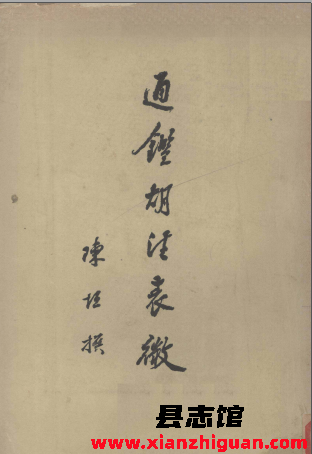 通鑑胡注表微
陳垣撰
县志馆
www.xianzhiguan.com